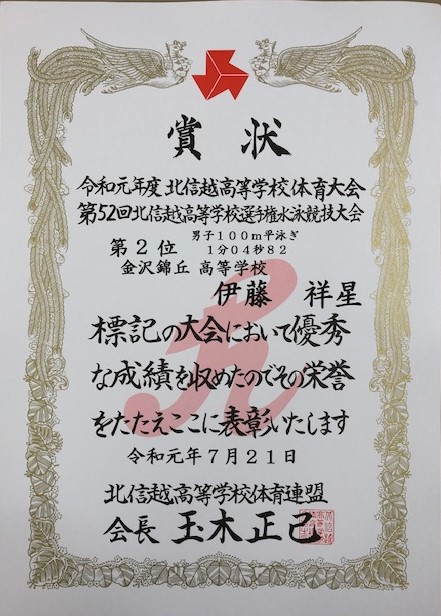 賞状
令和元年度 北信越高等学校体育大会
第52回北信越高等学校選手権水泳競技大会
男子100m平泳ぎ
第2位 1分04秒82
金沢錦丘 高等学校
伊藤 祥星
標記の大会において優秀
な成績を収めたのでその栄誉
をたたえここに表彰いたします
令和元年7月21日
北信越高等学校体育連盟
会長 玉木正己